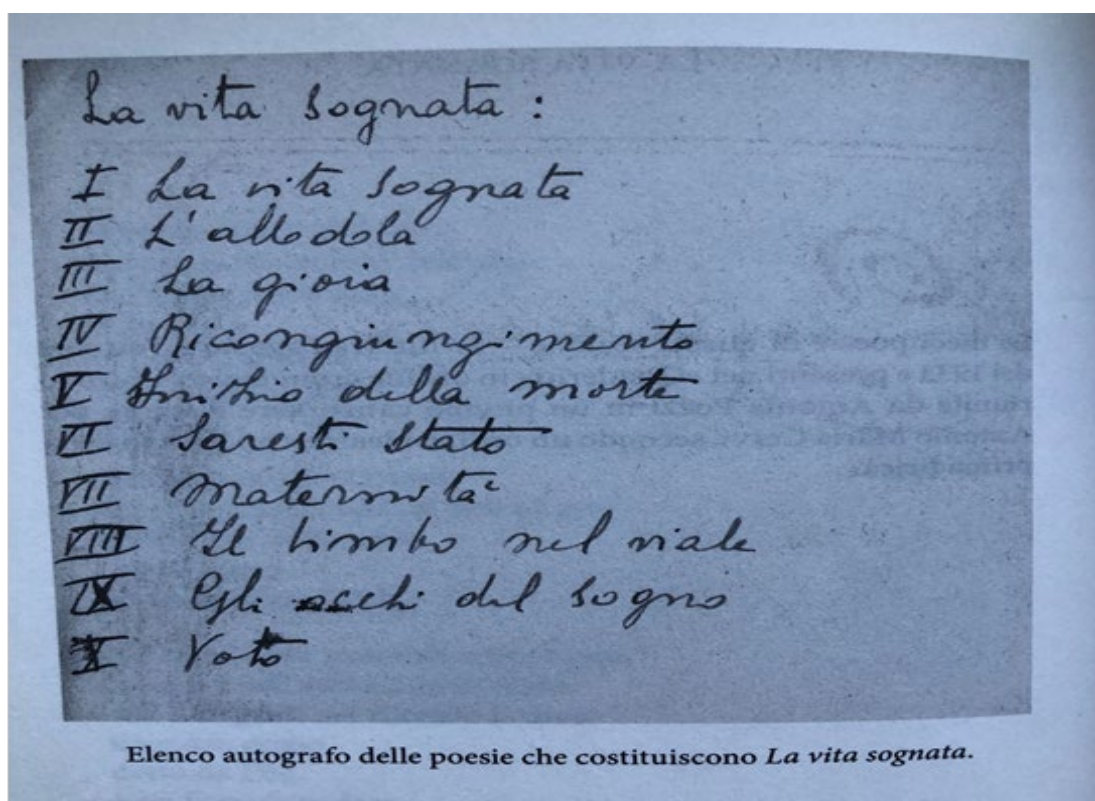 La vita sognata :
I La vita sognata
II L'allodola
III La gioia
IV Ricongiungimento
V Inizio della morte
VI Saresti stato
VII Maternità
VIII Il bimbo nel viale
IX Gli occhi del sogno
X Voto
Elenco autografo delle poesie che costituiscono La vita sognata.